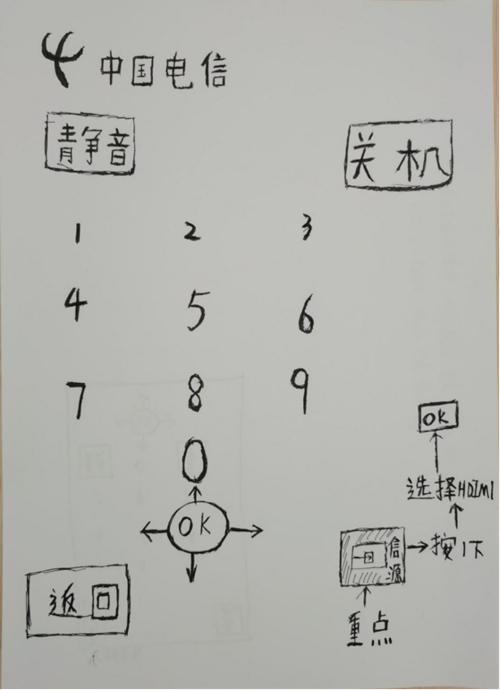 中国电信
静音
关机
1 2 3
4 5 6
7 8 9
0
OK
返回
OK
选择HDIMI
信源
按1下
重点